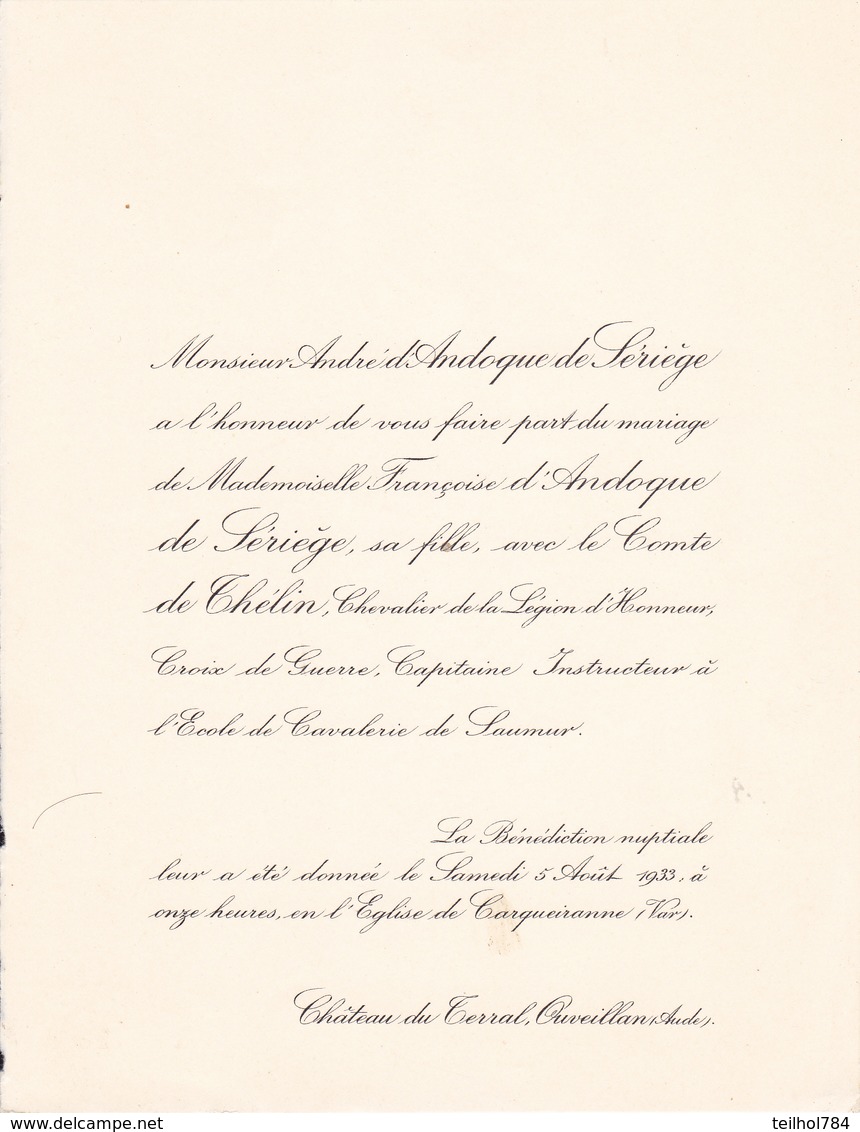 Monsieur André d'Andoque de Sériège
a l'honneur de vous faire part du mariage
de Mademoiselle Françoise d'Andoque
de Sériège, sa fille, avec le Comte
de Thélin, Chevalier de la Légion d'Honneur,
Croix de Guerre, Capitaine Instructeur à
l'Ecole de Cavalerie de Saumur.
La Bénédiction nuptiale
leur a été donnée le Samedi 5 Août 1933, à
onze heures, en l'Eglise de Carqueiranne (Var).
Château du Terral, Ouveillan (Aude).
delcampe.net
teilhol784